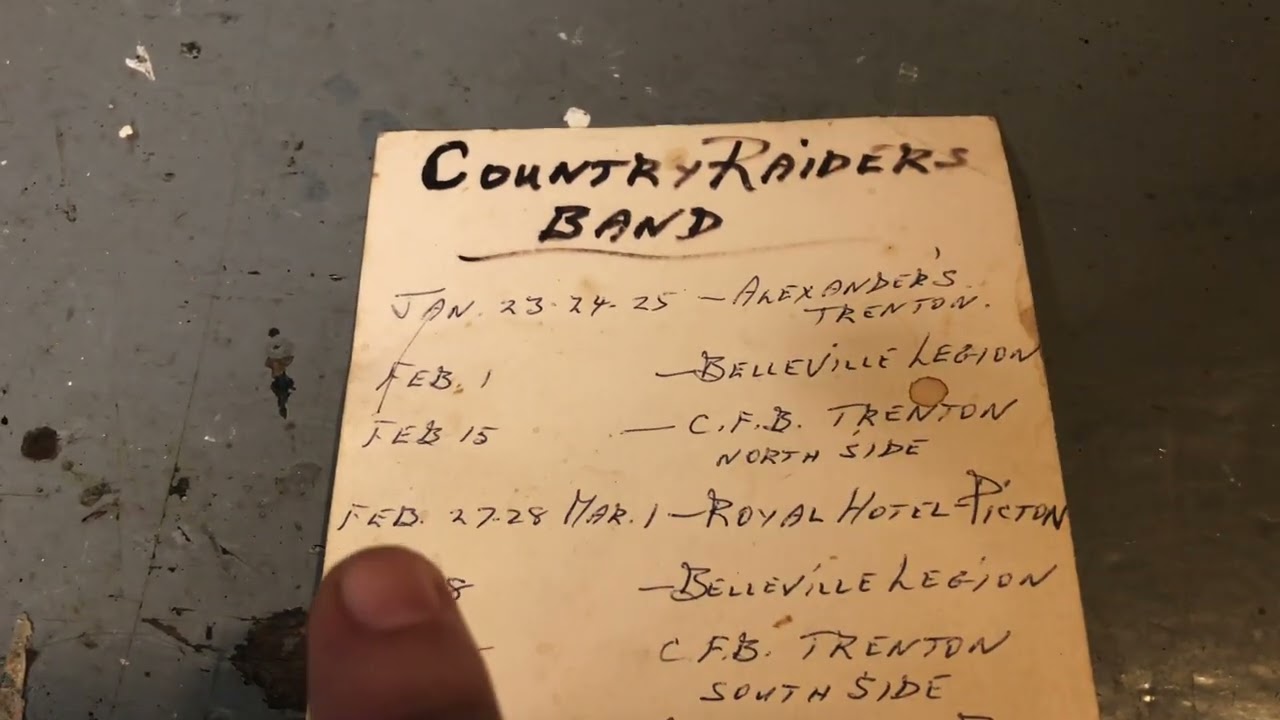 COUNTRY RAIDERS
BAND
JAN. 23-24-25 — ALEXANDER'S
TRENTON.
FEB. 1 — BELLEVILLE LEGION
FEB 15 — C.F.B. TRENTON
NORTH SIDE
FEB. 27-28 MAR. 1 — ROYAL HOTEL - PICTON
8 — BELLEVILLE LEGION
C.F.B. TRENTON
SOUTH SIDE